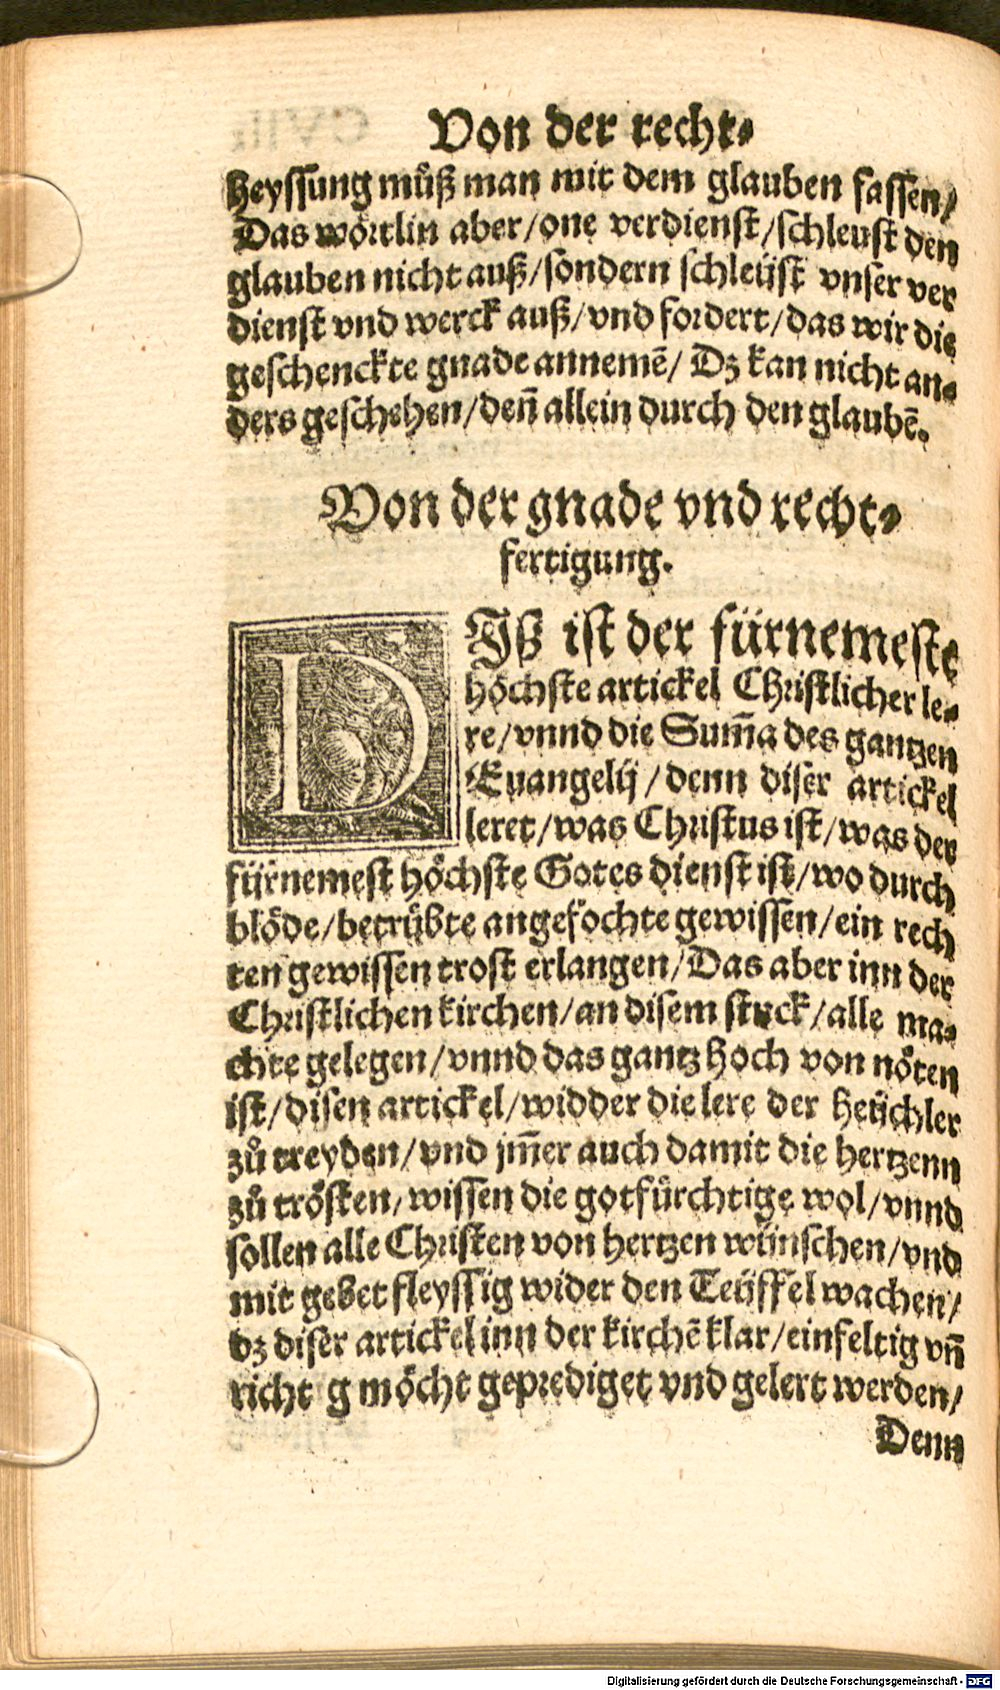 Von der recht⸗
heyssung můß man mit dem glauben fassen/
Das wörtlin aber/one verdienst/schleust den
glauben nicht auß/sondern schleüst vnser ver
dienst vnd werck auß/vnd fordert/das wir die
geschenckte gnade annemē/ Dz kan nicht an⸗
ders geschehen/deñ allein durch den glaubē.
Von der gnade vnd recht⸗
fertigung.
DIß ist der fürnemeste
höchste artickel Christlicher le⸗
re/vnnd die Sum̄a des gantzen
Euangelij/denn diser artickel
leret/was Christus ist/was der
fürnemest höchste Gotes dienst ist/wo durch
blöde/betrübte angefochte gewissen/ein rech
ten gewissen trost erlangen/Das aber inn der
Christlichen kirchen/an disem stuck/alle ma⸗
chte gelegen/vnnd das gantz hoch von nöten
ist/disen artickel/widder die lere der heüchler
zů treyben/vnd jm̄er auch damit die hertzenn
zů trösten/wissen die gotfürchtige wol/vnnd
sollen alle Christen von hertzen wünschen/vnd
mit gebet fleyssig wider den Teüffel wachen/
dz diser artickel inn der kirchē klar/einfeltig vñ
richt g möcht geprediget vnd gelert werden/
Denn
Digitalisierung gefördert durch die Deutsche Forschungsgemeinschaft - DFG